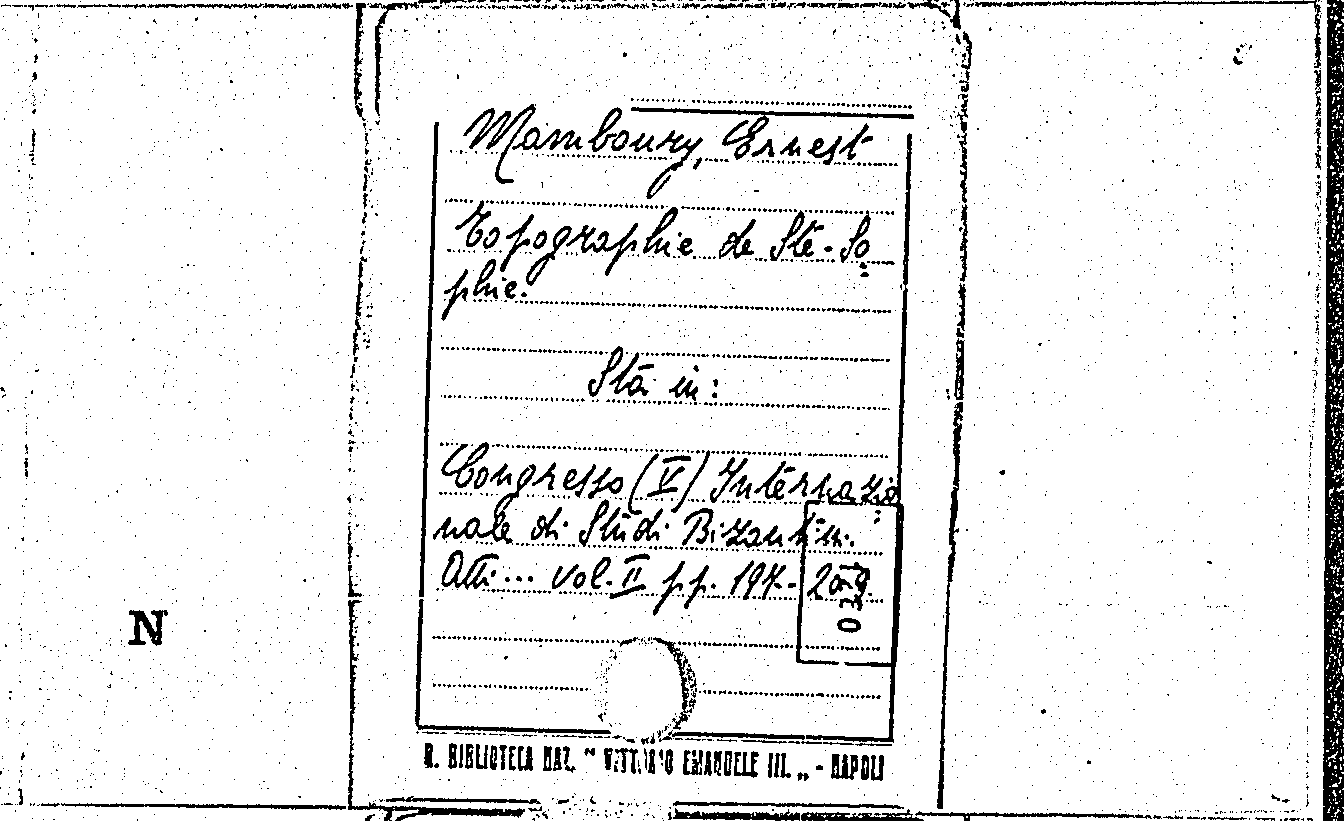 Mamboury, Ernest
Topographie de Ste-So=
phie.
Sta in:
Congresso (V) Internazio=
nale di Studi Bizantini.
Atti... vol. II pp. 197-209
N
R. BIBLIOTECA NAZ. "VITTORIO EMANUELE III." - NAPOLI